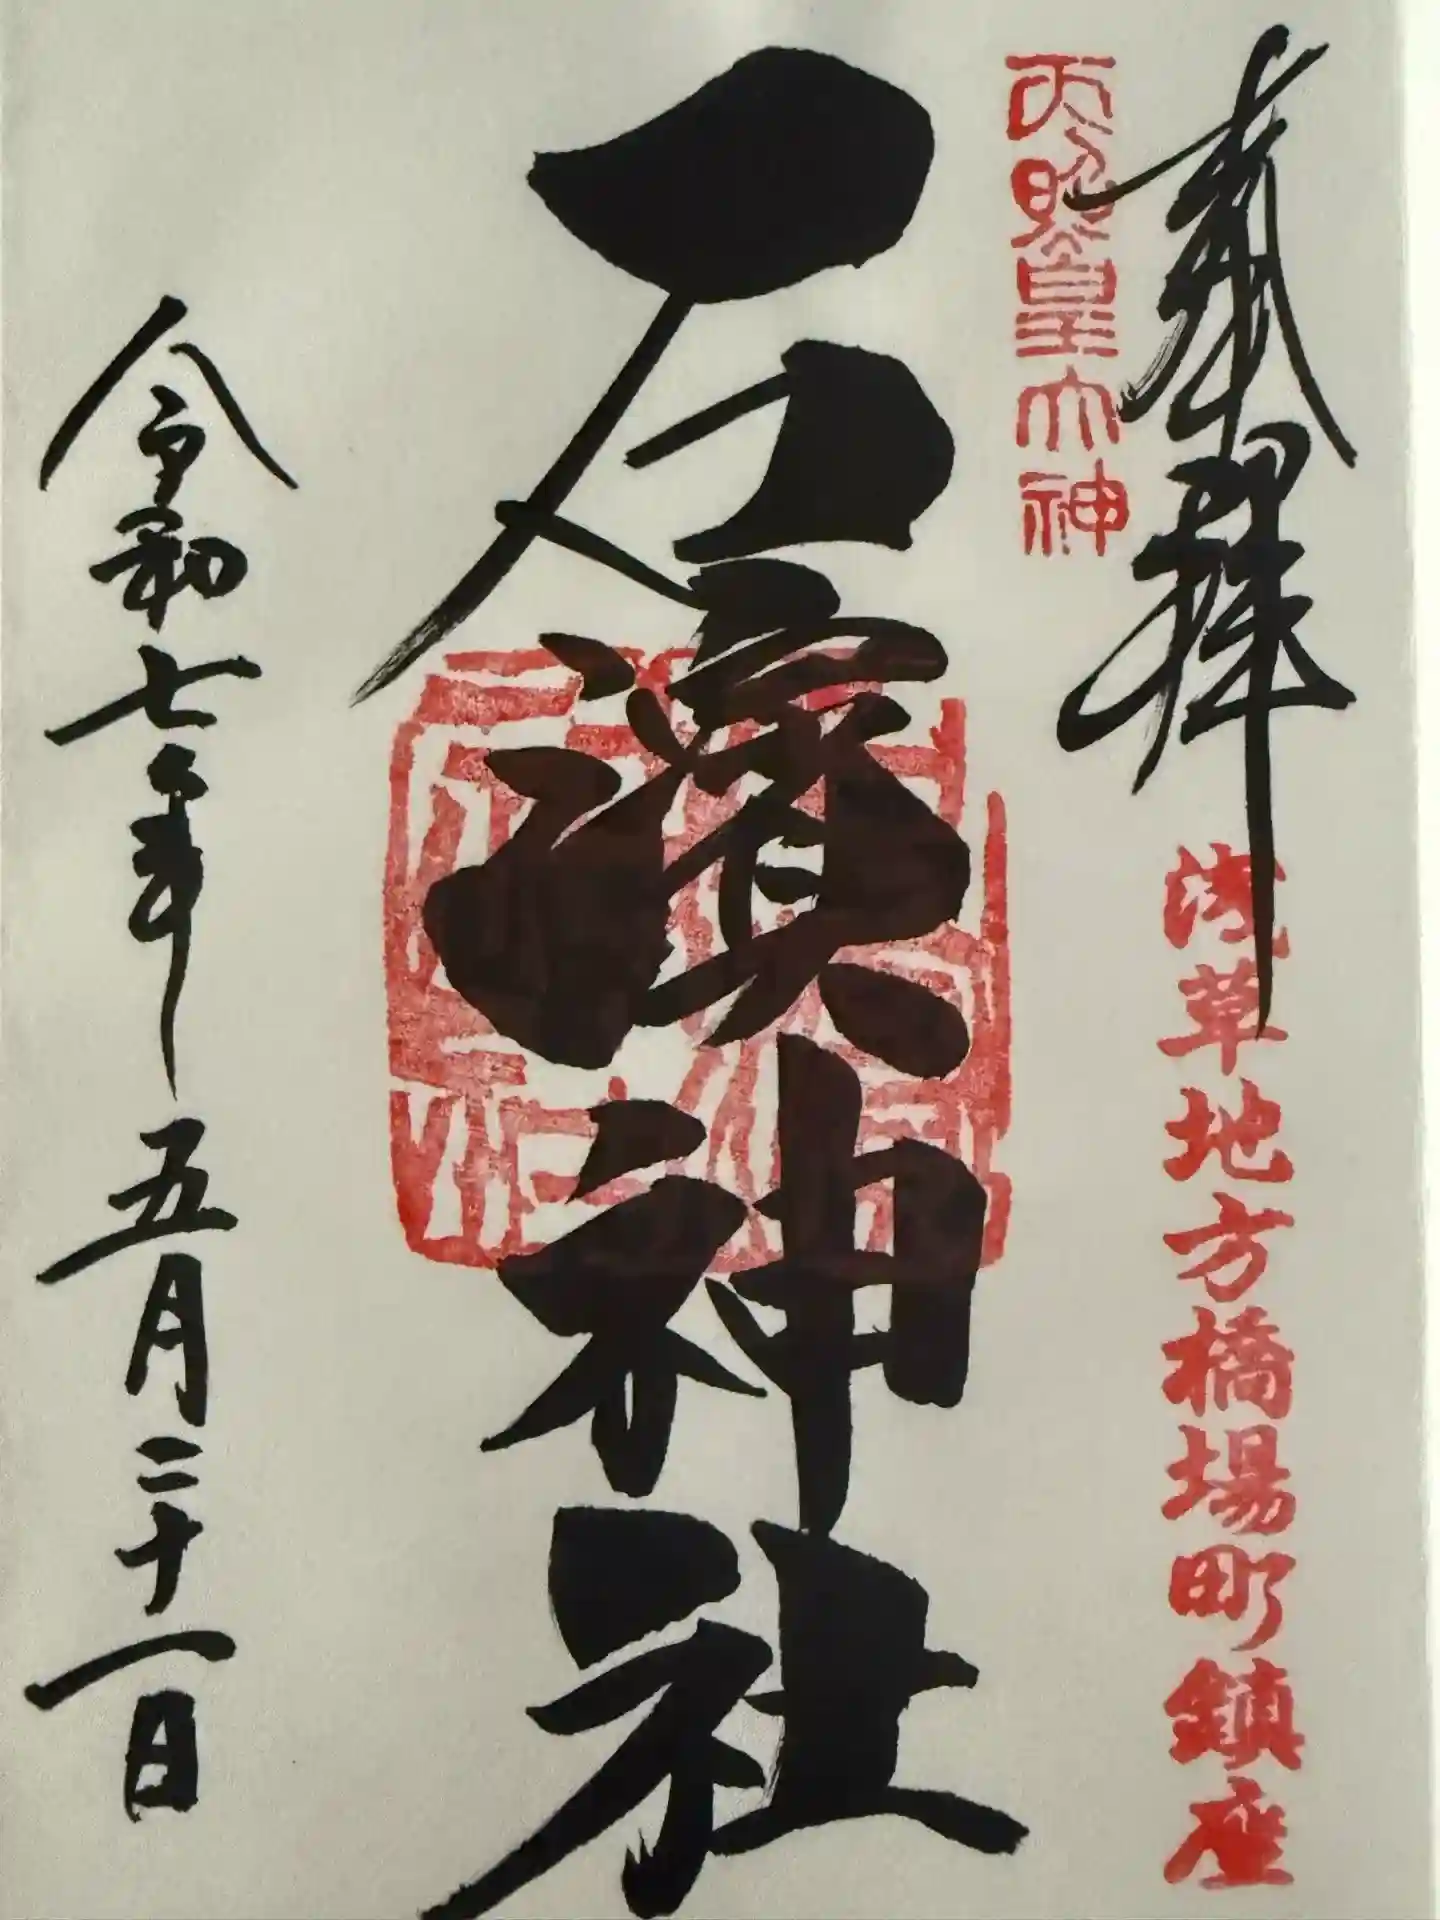 奉拝
浅草地方橋場町鎮座
天照皇大神
石濱神社
令和七年五月二十一日